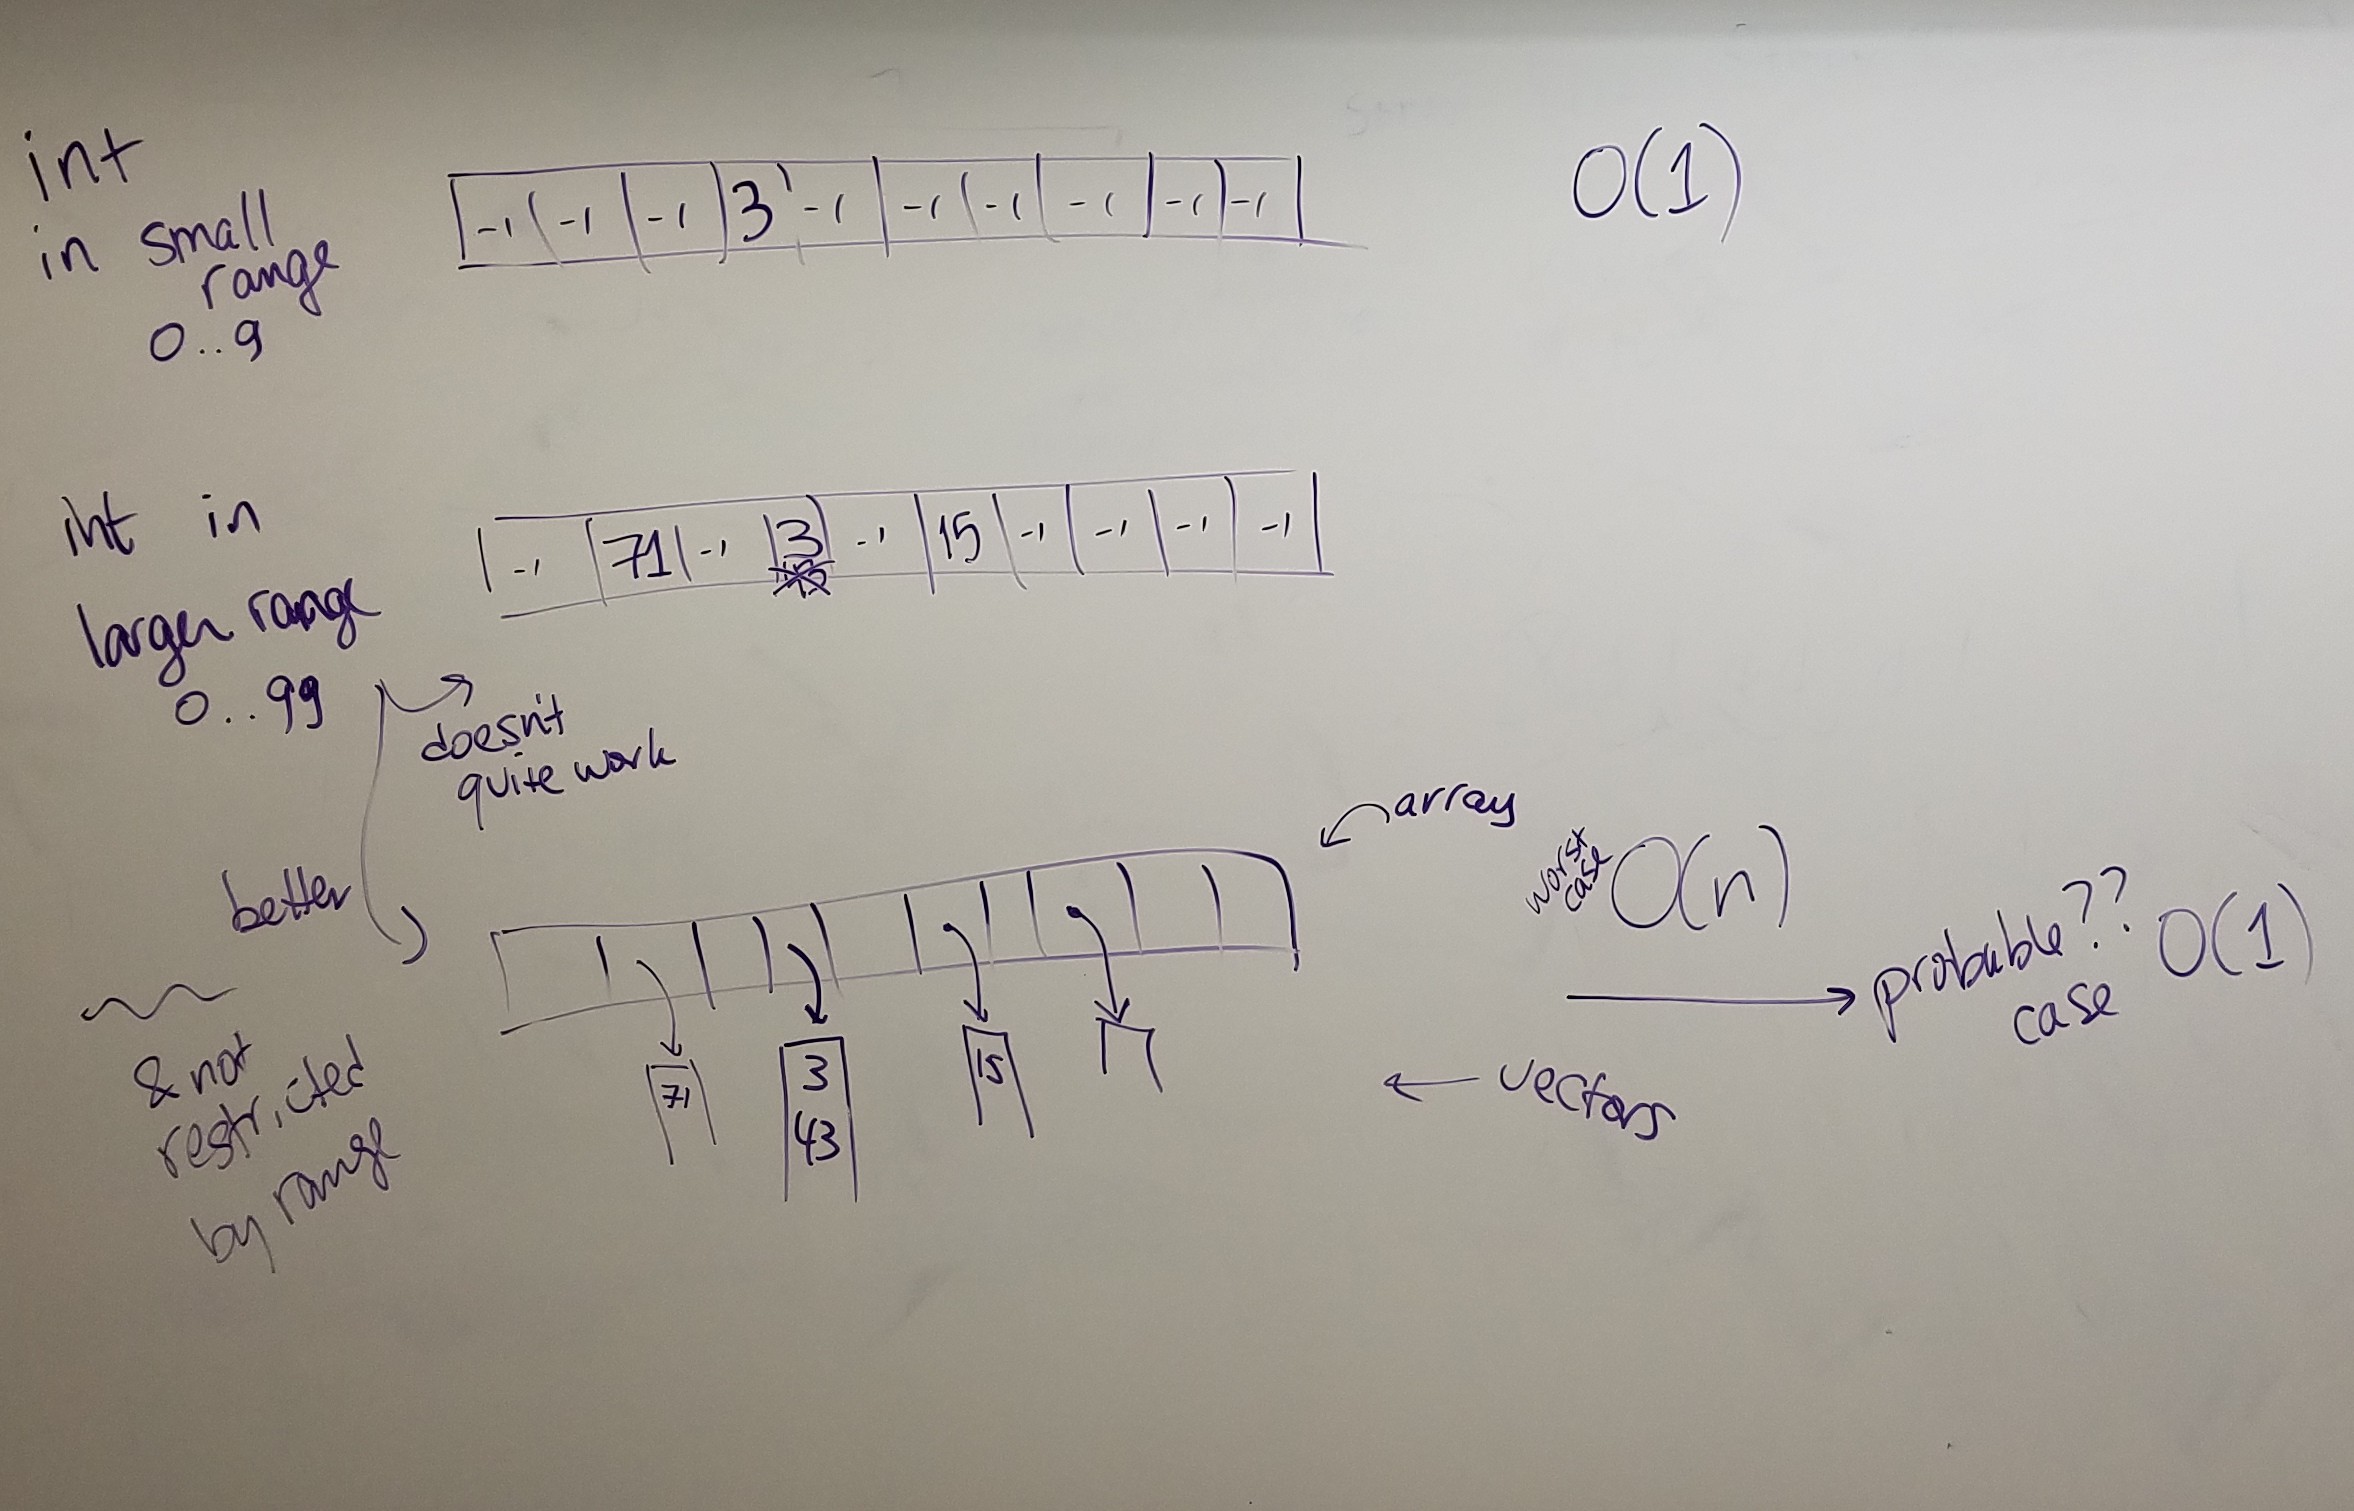 int
in small
range
0..9
-1 -1 -1 3 -1 -1 -1 -1 -1 -1
O(1)
int in
larger range
0..99
-1 71 -1 3 -1 15 -1 -1 -1 -1
doesn't
quite work
better
& not
restricted
by range
array
71
3
43
15
vectors
worst
case
O(n)
probable??
case O(1)